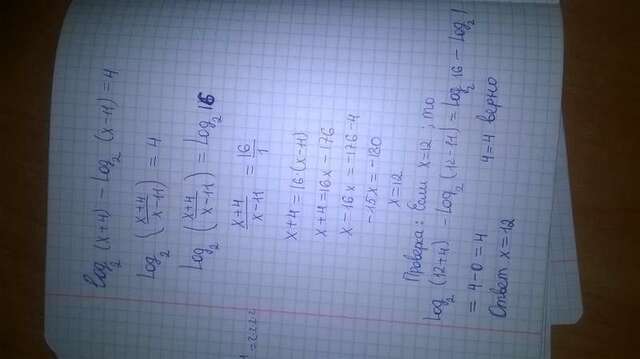 log₂(x+4) - log₂(x-11) = 4
log₂((x+4)/(x-11)) = 4
log₂((x+4)/(x-11)) = log₂16
(x+4)/(x-11) = 16/1
x+4=16(x-11)
x+4=16x-176
x-16x=-176-4
-15x=-180
x=12
Проверка: Если x=12, то
log₂(12+4) - log₂(12-11) = log₂16 - log₂1
= 4-0=4 4=4 верно
Ответ x=12